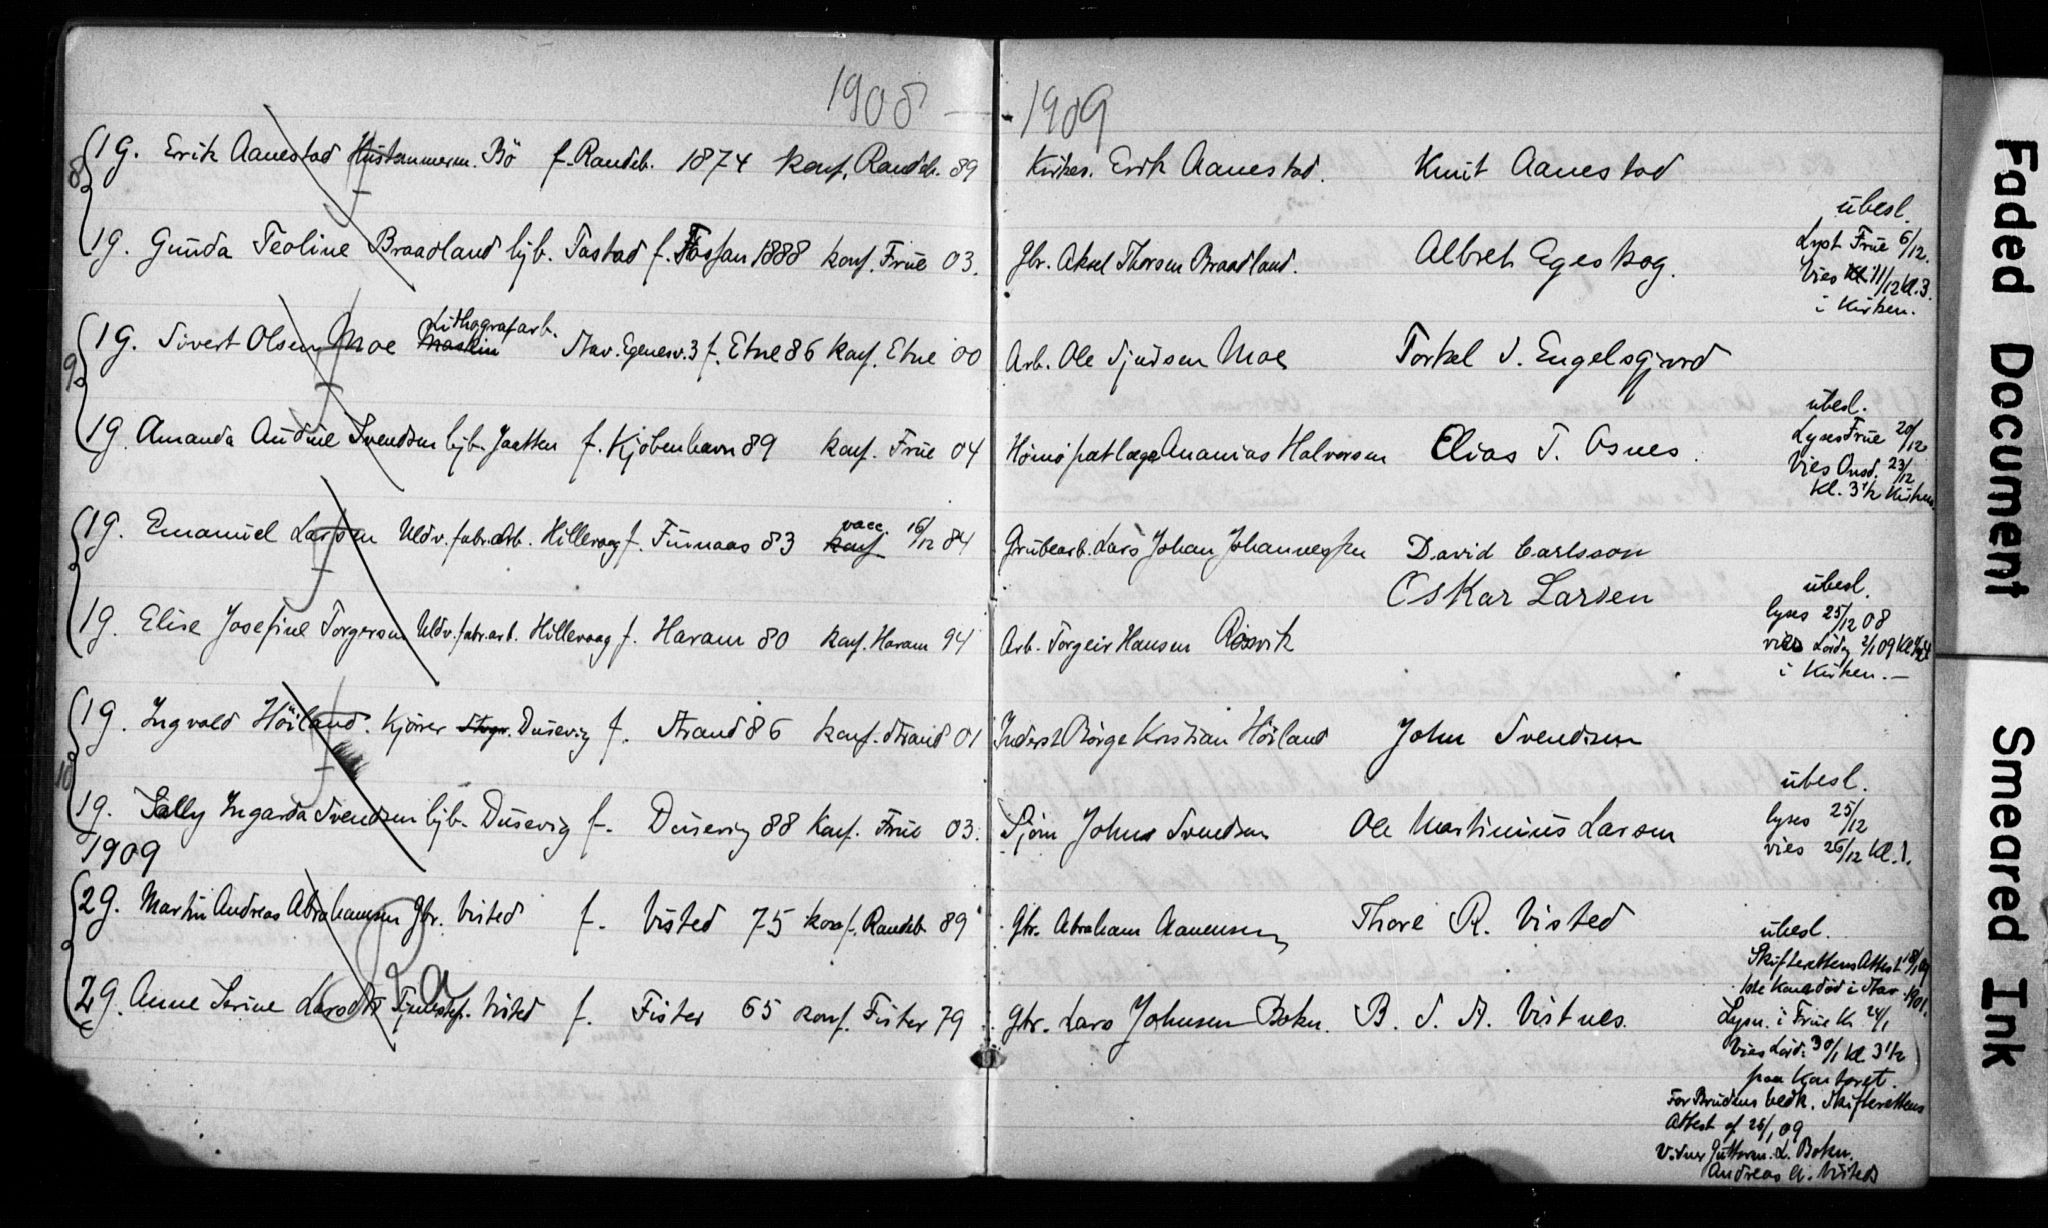 1908 - 1909
1g. Erik Aanestad Bö f. Randeb. 1874 konf. Randeb. 89 Kirkes. Erik Aanestad. Knut Aanestad
8
ubesl.
1g. Gunda Teoline Braadland hjb. Tastad f. 1888 konf. Frue 03. Gbr. Aksel Thorsen Braadland. Albreh Egeskog.
Lyst Frue 6/12.
Vies 11/12 Kl. 3.
i Kirken.
Lithografarb.
1g. Sivert Olsen Moe Maskin Stav. Egenesv. 3 f. Etne 86 konf. Etne 00 Arb. Ole Sjursen Moe Torkel S. Engelsgjerd
9
ubesl.
1g. Amanda Audine Svendsen hjb. Jaatten f. Kjöbenhavn 89 konf. Frue 04 Homöpatlæge Ananias Halvorsen Elias T. Osnes.
Lyses Frue 20/12
Vies Onsd. 23/12
Kl. 3 1/2 Kirken
vacc.
1g. Emanuel Larsen Uldv.fabr.arb. Hillevaag f. Finnaas 83 konf 16/12 84 Grubearb. Lars Johan Johannessen David Carlsson
Oskar Larsen
ubesl.
1g. Elise Josefine Torgersen Uldv.fabr.arb. Hillevaag f. Haram 80 konf. Haram 94 Arb. Torgeir Hansen Risvik
lyses 25/12 08
vies Lördag 2/1 09 Kl.
i Kirken. -
1g. Ingvald Höiland. Kjörer Dusevig f. Strand 86 konf. Strand 01 Inderst Börge Kristian Höiland John Svendsen
10
ubesl.
1g. Sally Ingarda Svendsen hjb. Dusevig f. Dusevig 88 konf. Frue 03. Sjöm John Svendsen Ole Martinius Larsen
lyses 25/12
vies 26/12 Kl. 1.
1909
2g. Martin Andreas Abrahamsen Gbr. Visted f. Visted 75 konf. Randeb 89 Gbr. Abraham Aanensen Thore R. Visted
ubesl.
Skifterettens Attest 18/1 09
1ste Kone död i Stav. 1901.
2a
2g. Anne Serine Larsdtr Tjenestep. Visted f. Fister 65 konf. Fister 79 Gbr. Lars Johnsen Bokn. B. S. A. Vistnes.
Lysn. i Frue K. 24/1
Vies Lörd. 30/1 Kl 3 1/2
paa Kontoret.
For Brudens Vedk. Skifterettens
Attest af 26/1 09
Vidner Guttorm. L. Bokn.
Andreas A. Visted
Faded Document
Smeared Ink